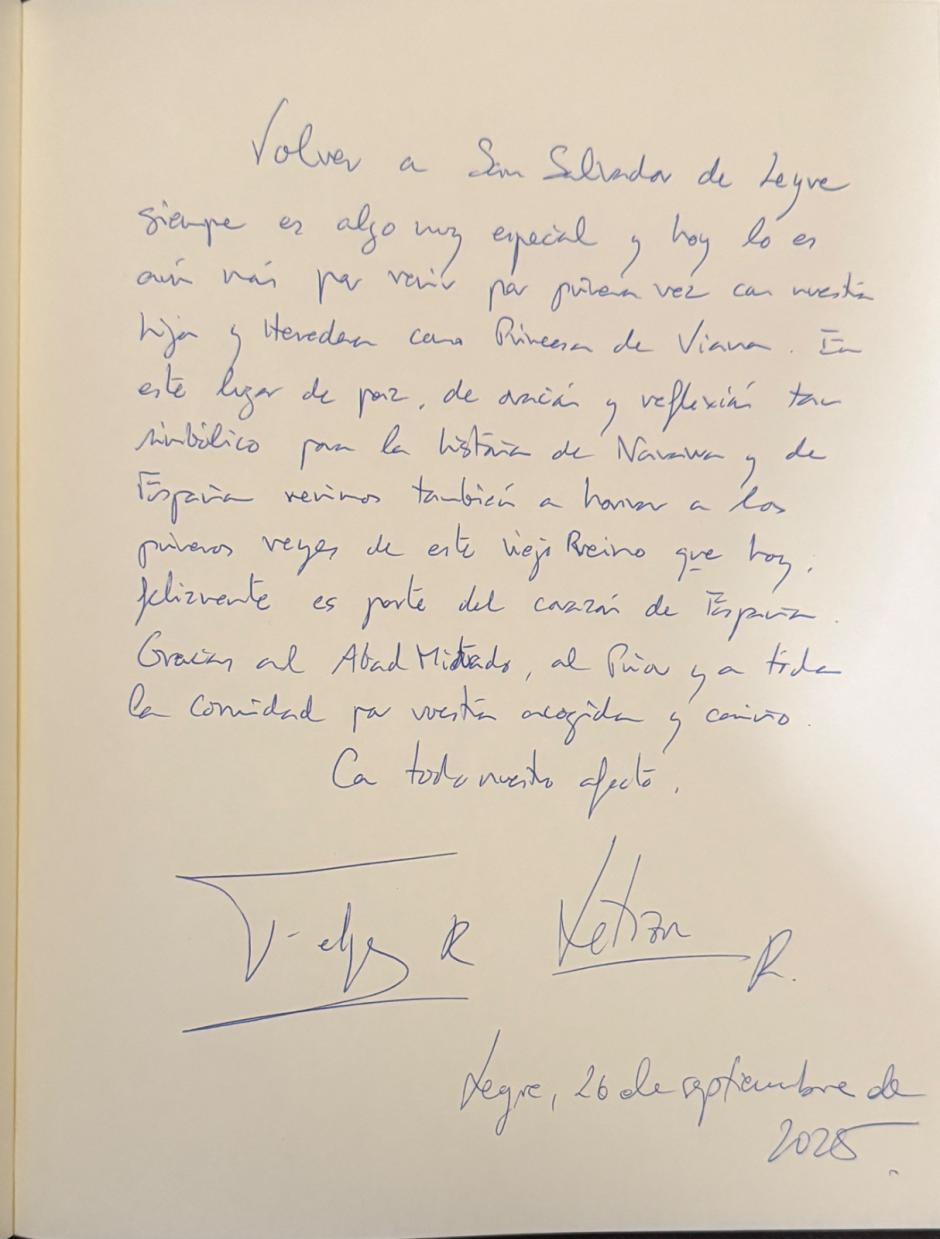 Volver a San Salvador de Leyre
siempre es algo muy especial y hoy lo es
aún más por venir por primera vez con nuestra
hija y Heredera como Princesa de Viana. En
este lugar de paz, de oración y reflexión tan
simbólico para la historia de Navarra y de
España venimos también a honrar a los
primeros reyes de este viejo Reino que hoy,
felizmente es parte del corazón de España.
Gracias al Abad Mitrado, al Prior y a toda
la comunidad por vuestra acogida y cariño.
Con todo nuestro afecto.
Felipe R Letizia R.
Leyre, 26 de septiembre de
2025.